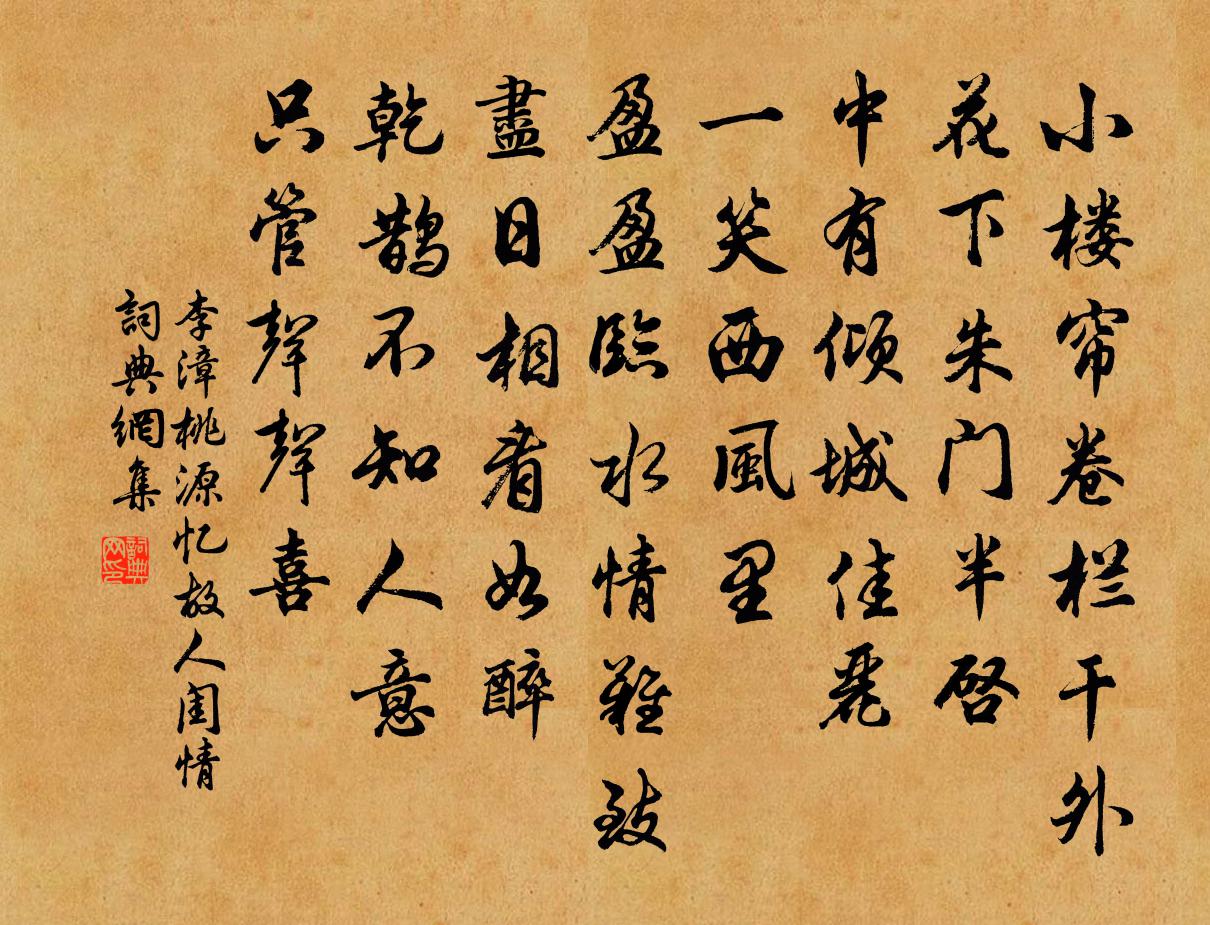 小楼帘卷栏干外
花下朱门半启
中有倾城佳麗
一笑西風里
盈盈臨水情難致
盡日相看如醉
乾鹊不知人意
只管聲聲喜
李漳桃源忆故人闺情
詞典網集
詞典网印